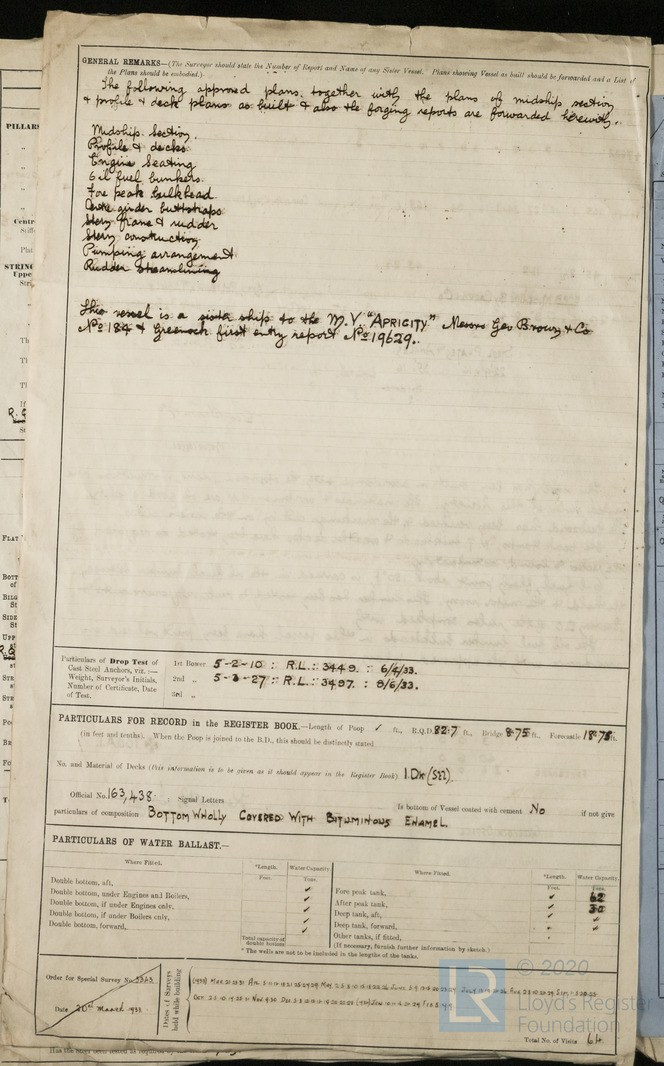 GENERAL REMARKS—(The Surveyor should state the Number of Report and Name of any Sister Vessel. Plans showing Vessel as built should be forwarded and a List of
the Plans should be embodied.)
The following approved plans, together with the plans of midship section
& profile & deck plans as built & also the forging reports are forwarded herewith.
Midship Section.
Profile & decks
Engine Seating
Oil fuel bunkers.
Fore peak bulkhead.
Centre girder buttstraps
Stern frame & rudder
Stern construction
Pumping arrangement
Rudder Streamlining
This vessel is a sister ship to the M.V. "APRICITY" Messrs Geo Brown & Co
No 184 & Greenock first entry report No 19629.
Particulars of Drop Test of
Cast Steel Anchors, viz.:—
Weight, Surveyor's Initials,
Number of Certificate, Date
of Test.
1st Bower 5-2-10 : R.L.: 3449. : 6/4/33.
2nd „ : R.L.: 3497. : 9/6/33.
3rd „
PARTICULARS FOR RECORD in the REGISTER BOOK.—Length of Poop ✓ ft., R.Q.D. 82·7 ft., Bridge 8·75 ft., Forecastle 18·75 ft.
(in feet and tenths). When the Poop is joined to the B.D., this should be distinctly stated
No. and Material of Decks (this information is to be given as it should appear in the Register Book) 1.Dk (Stl).
Official No. 163,438 ; Signal Letters
Is bottom of Vessel coated with cement No if not give
particulars of composition BOTTOM WHOLLY COVERED WITH BITUMINOUS ENAMEL.
PARTICULARS OF WATER BALLAST.—
Where Fitted. *Length. Water Capacity. Where Fitted. *Length. Water Capacity.
Feet. Tons. Feet. Tons.
Double bottom, aft, ✓ Fore peak tank, ✓ 62
Double bottom, under Engines and Boilers, ✓ After peak tank, ✓ 30
Double bottom, if under Engines only, ✓ Deep tank, aft, ✓
Double bottom, if under Boilers only, ✓ Deep tank, forward, ✓
Double bottom, forward, ✓ Other tanks, if fitted,
Total capacity of double bottom
(If necessary, furnish further information by sketch.)
* The wells are not to be included in the lengths of the tanks.
Order for Special Survey No.
Date 20th March 1933
Dates of Surveys held while building
Total No. of Visits 64
© 2020
Lloyd's Register
Foundation
LR
PILLARS
STRING
Uppe
FLAT
BOTT
of
BILG
SIDE
UPP